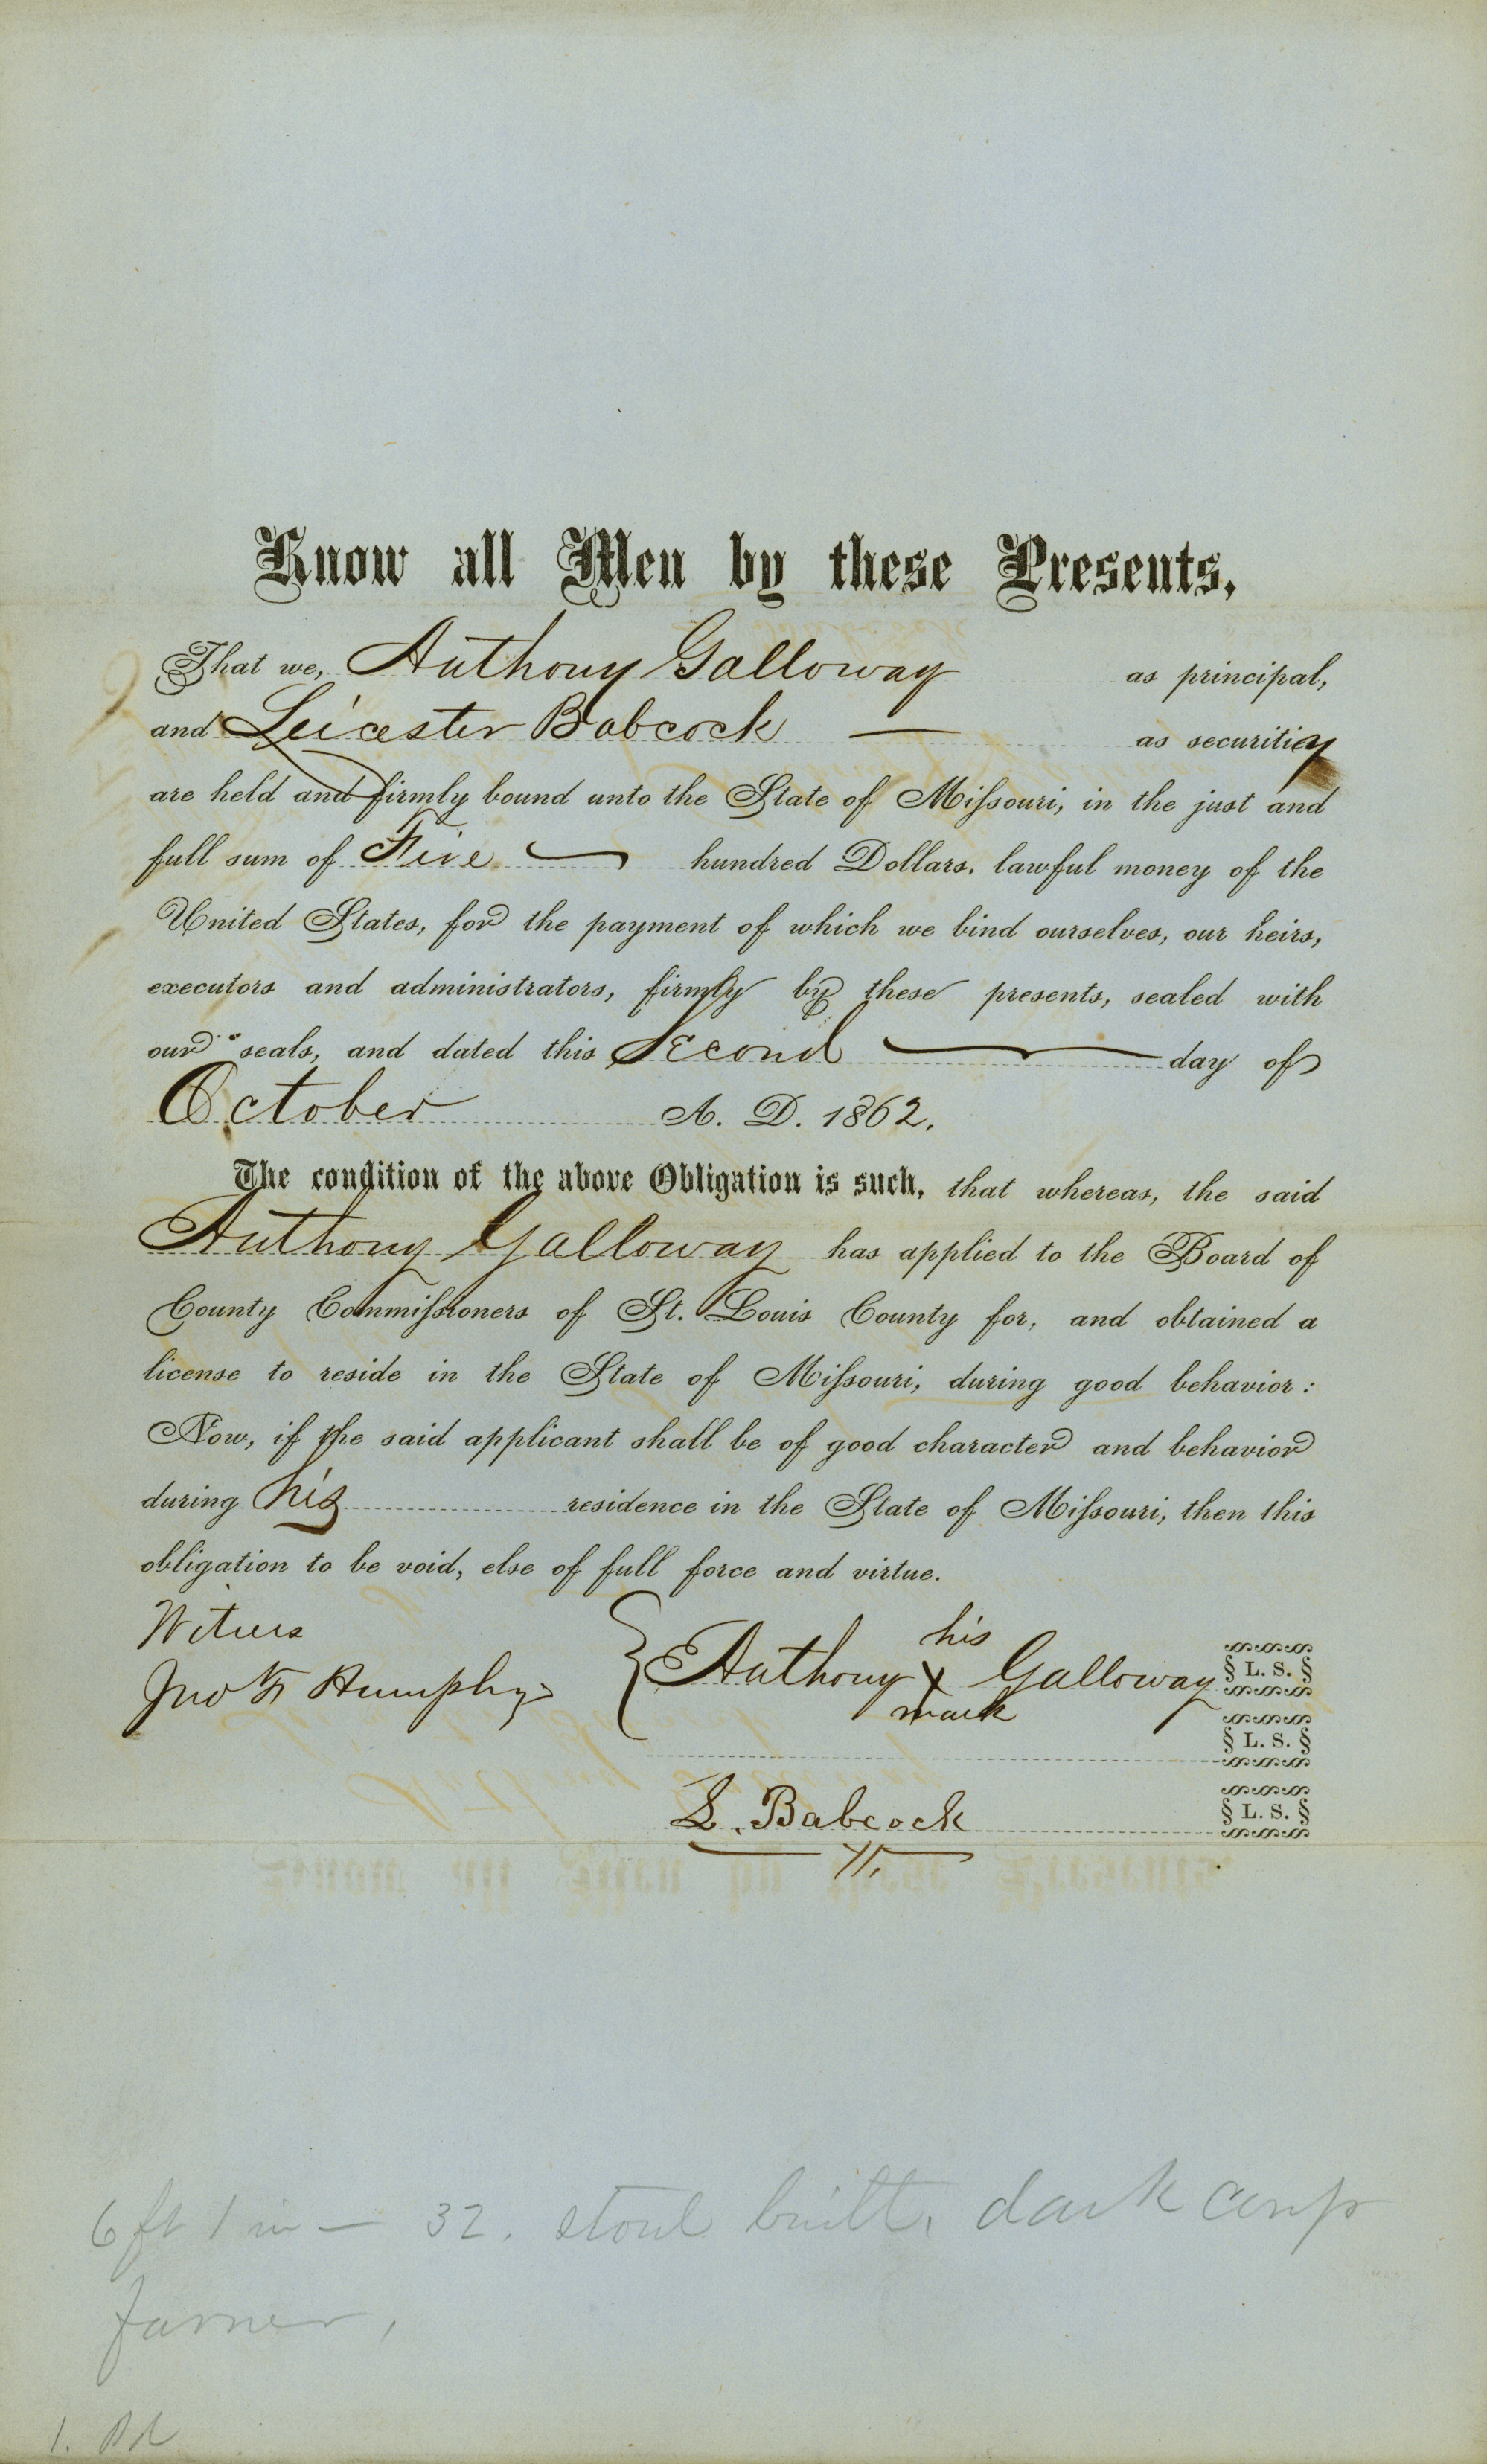 Know all Men by these Presents,
That we, Anthony Galloway as principal,
and Leicester Babcock — as security
are held and firmly bound unto the State of Miſsouri, in the just and
full sum of Five — hundred Dollars, lawful money of the
United States, for the payment of which we bind ourselves, our heirs,
executors and administrators, firmly by these presents, sealed with
our seals, and dated this Second — day of
October A. D. 1862.
The condition of the above Obligation is such, that whereas, the said
Anthony Galloway has applied to the Board of
County Commiſsioners of St. Louis County for, and obtained a
license to reside in the State of Miſsouri, during good behavior:
Now, if the said applicant shall be of good character and behavior
during his residence in the State of Miſsouri, then this
obligation to be void, else of full force and virtue.
Witness
his
Jno F Humphys
Anthony X Galloway L. S.
mark
L. S.
L. Babcock L. S.
6 ft 1 in — 32. stout built, dark comp
farmer,
1.